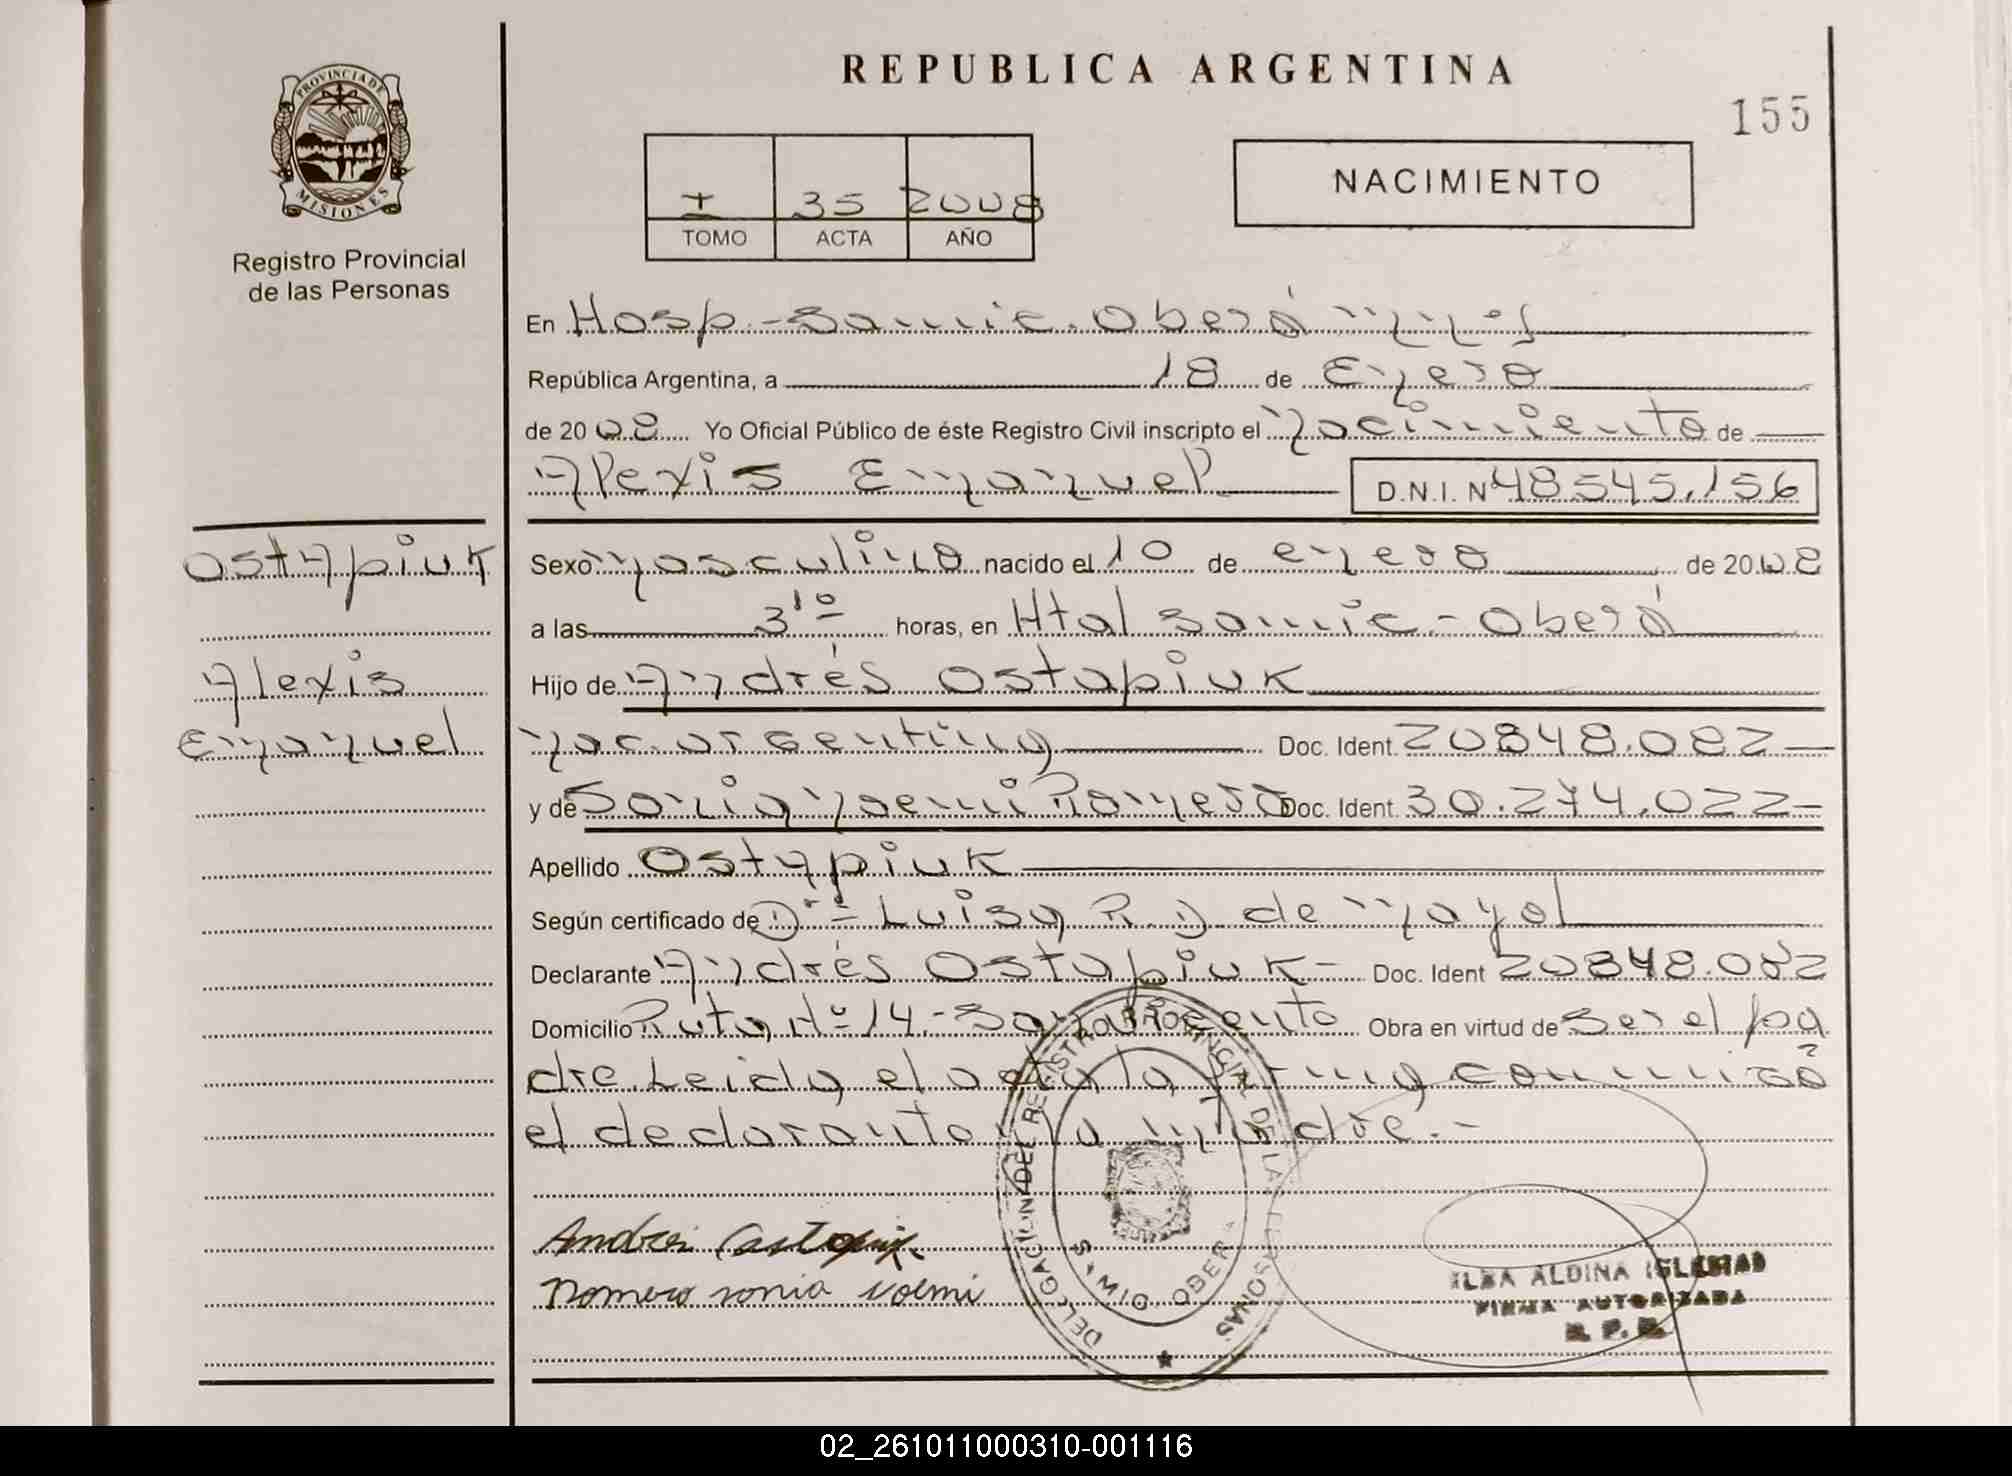 REPUBLICA ARGENTINA
155
PROVINCIA DE MISIONES
Registro Provincial
de las Personas
I 35 2008
TOMO ACTA AÑO
NACIMIENTO
En Hosp. Samic. Oberá Mnes
República Argentina, a 18 de Enero
de 2008 Yo Oficial Público de éste Registro Civil inscripto el Nacimiento de
Alexis Emanuel D.N.I. Nº 48.545.156
Ostapiuk
Alexis
Emanuel
Sexo Masculino nacido el 10 de enero de 2008
a las 3 10 horas, en Htal Samic - Oberá
Hijo de Andrés Ostapiuk
Nac. argentina Doc. Ident. 20848.082
y de Sonia Noemi Romero Doc. Ident. 30.274.022
Apellido Ostapiuk
Según certificado de Dra Luisa R. D de Mayol
Declarante Andrés Ostapiuk - Doc. Ident 20848.082
Domicilio Ruta Nº 14.- Sarmiento Obra en virtud de ser el pa
dre. Leida el acta la firma conmigo
el declarante y la madre.-
Andres Ostapiuk
Romero sonia Noemi
DELEGACION DEL REGISTRO PROVINCIAL DE LAS PERSONAS
SAMIC, OBERA
ILBA ALDINA IGLESIAS
FIRMA AUTORIZADA
R. P. P.
02_261011000310-001116